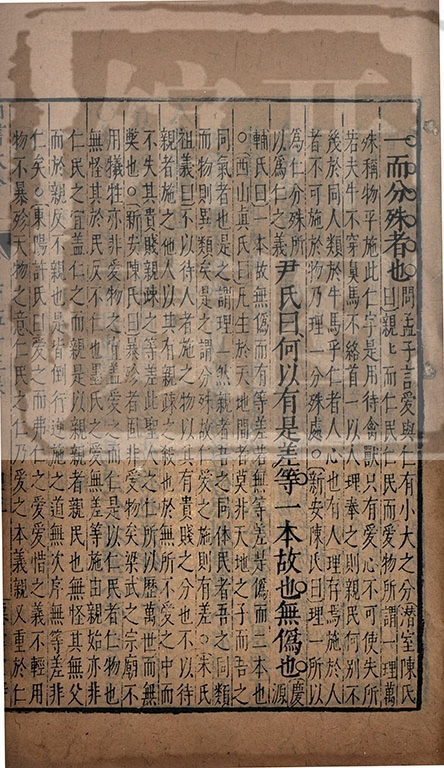 一而分殊者也
問孟子言愛與仁有小大之分潛室陳氏
曰親〻而仁民仁民而愛物所謂一理萬
殊稱物平施此仁字是用待禽獸只有愛心不可使失所
若夫牛不穿鼻馬不絡首一以人理奉之則親民何别不
幾於同人類於牛馬乎仁者人心也有人理存焉施於人
者不可施於物乃理一分殊處○新安陳氏曰理一所以
為仁分殊所
以為仁之義
尹氏曰何以有是差等一本故也無偽也
慶源
輔氏曰一本故無偽而有等差若無等差是偽而二本也
○西山真氏曰凡生於天地間者莫非天地之子而吾之
同氣者也是之謂理一然親者吾之同体民者吾之同類
而物則異類矣是之謂分殊故仁愛之施則有差○朱氏
祖義曰不以待人者施之物以其有貴賤之分也不以待
親者施之他人以其有親疎之殺也於無所不愛之中而
不失其貴賤親疎之等差此聖人之仁所以歷萬世而無
獘也○新安陳氏曰暴殄者固非愛物矣梁武之宗廟不
用犧牲亦非愛物之宜蓋愛之而仁是以仁民者仁物也
無怪其於民反不仁也墨氏之愛無差等施由親始亦非
仁民之宜蓋仁之而親是以親親者親民也無怪其無父
而於親反不親也是皆倒行逆施之道無次序無等差非
仁矣○東陽許氏曰愛之而弗仁之愛愛惜之義不輕用
物不暴殄天物之意仁民之仁乃愛之本義親又重於仁